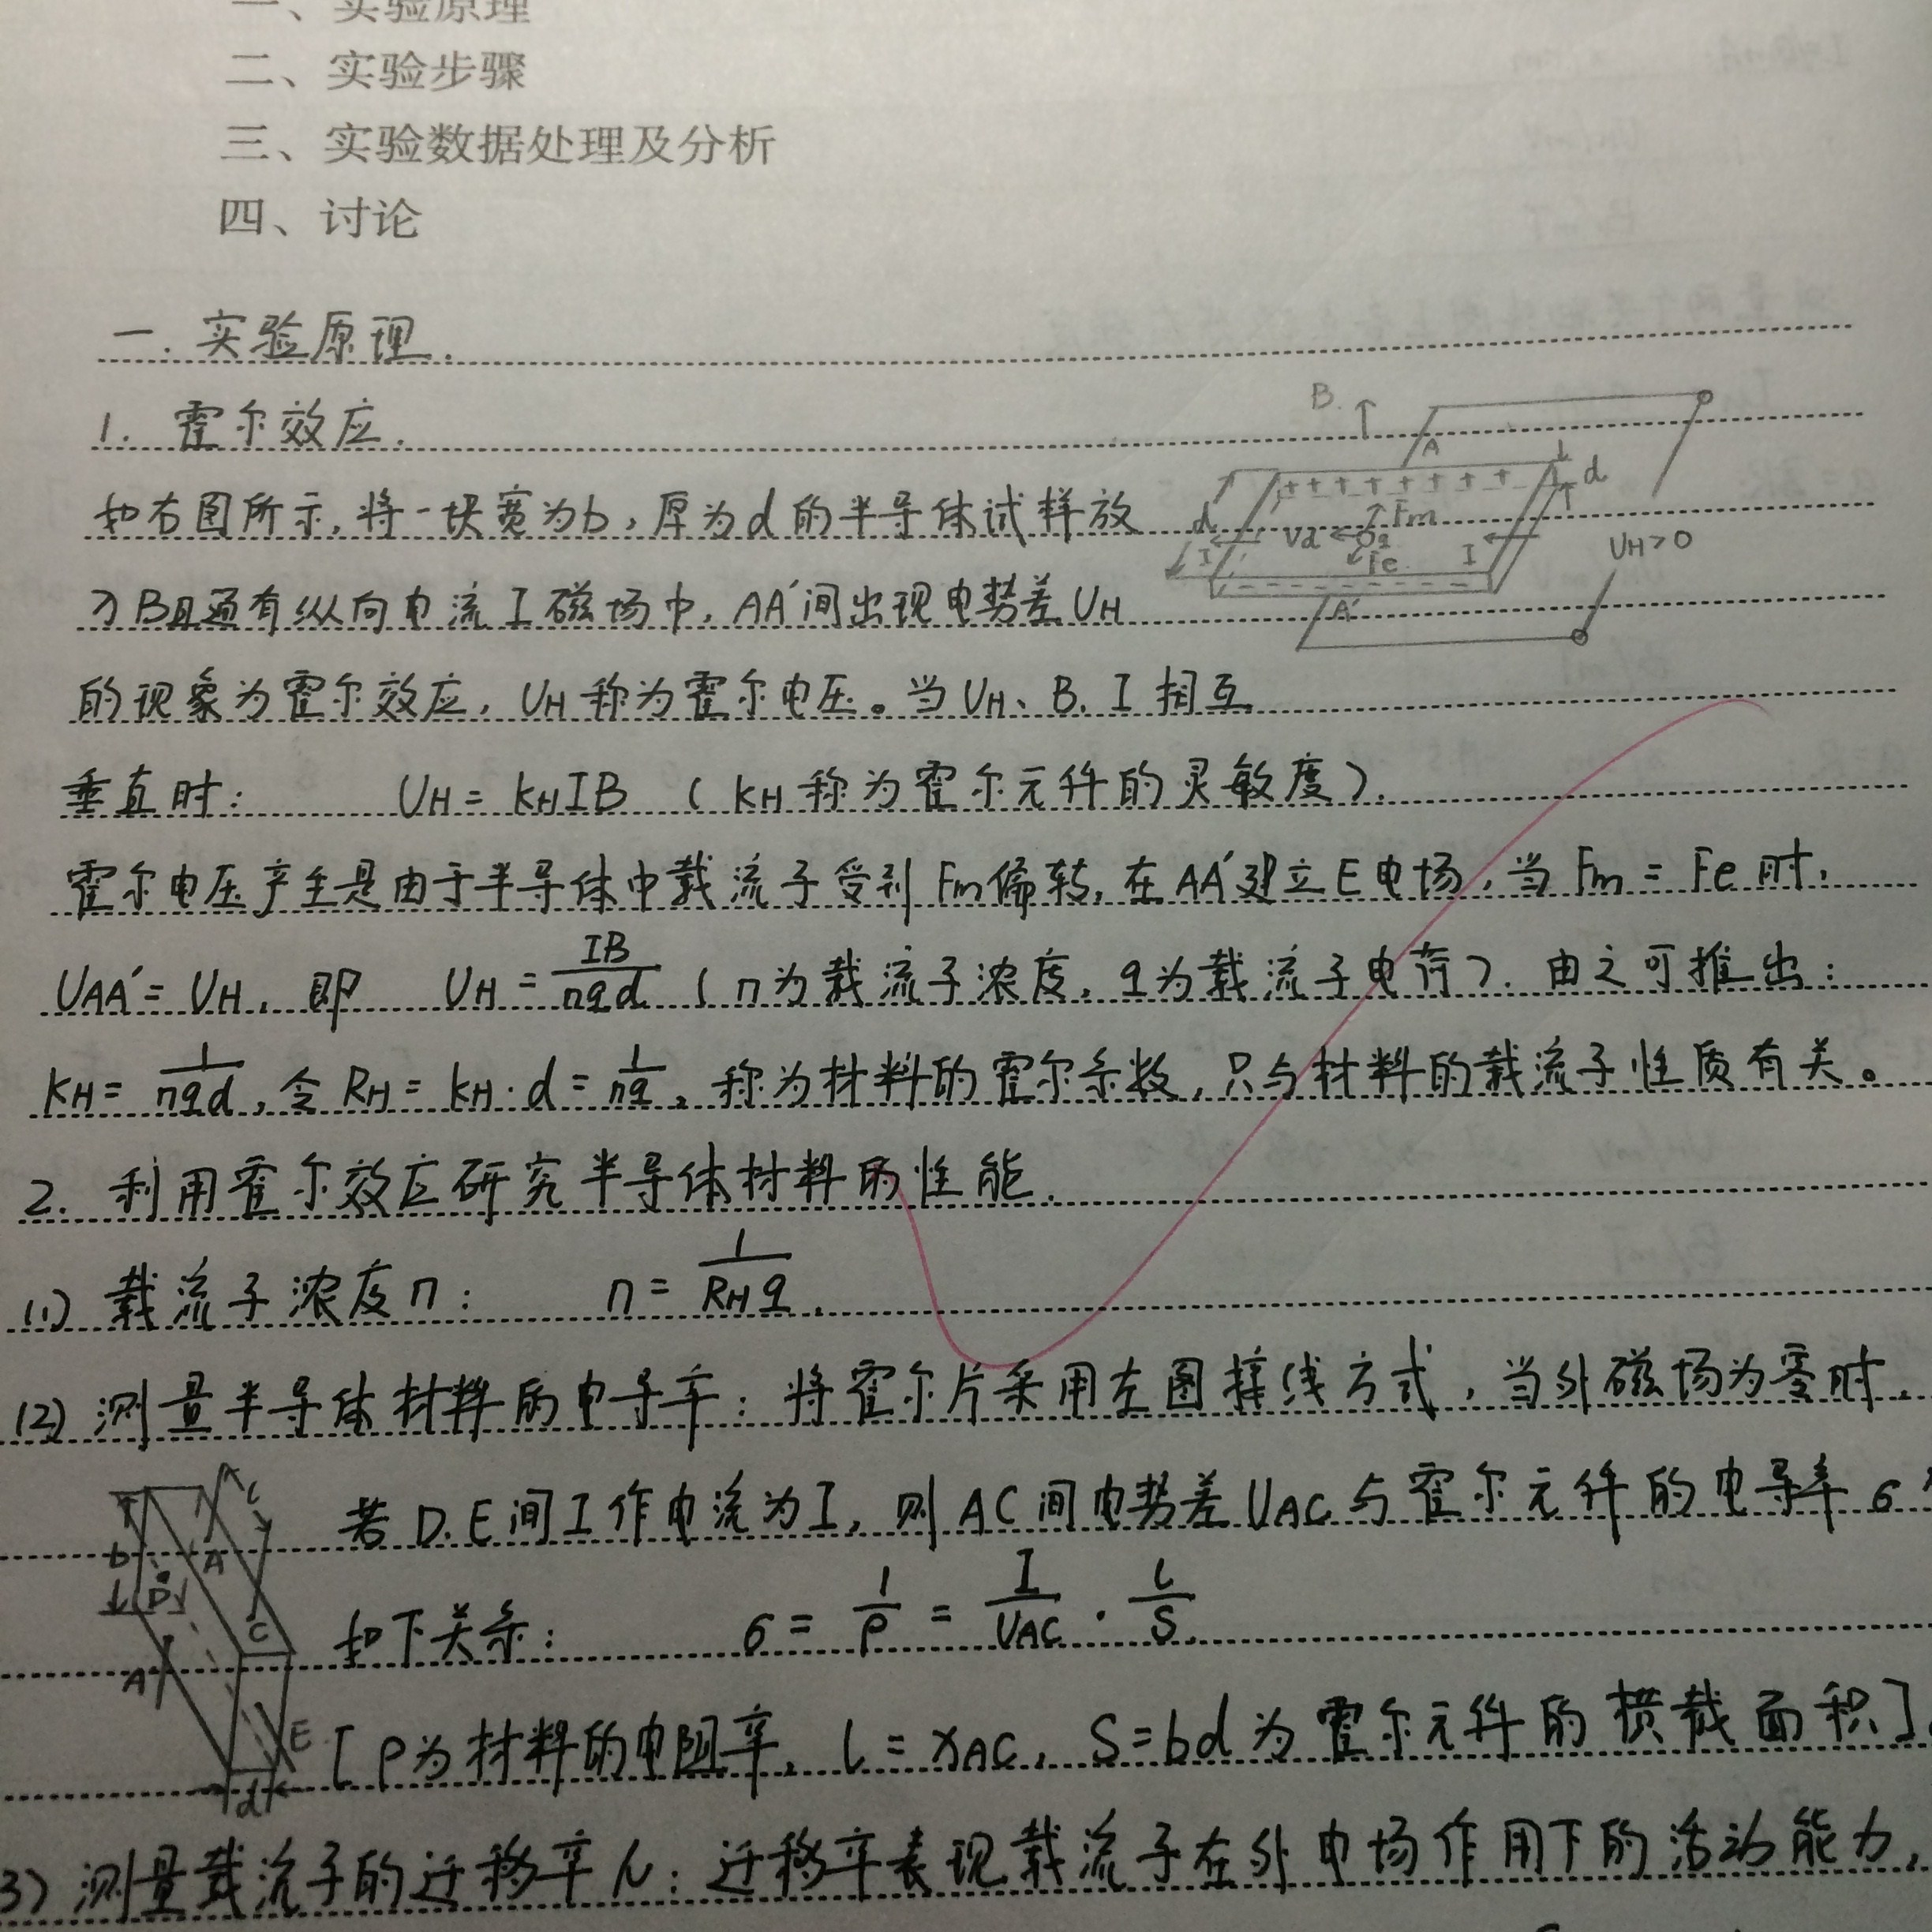 一、实验原理
二、实验步骤
三、实验数据处理及分析
四、讨论
一. 实验原理.
1. 霍尔效应.
如右图所示, 将一块宽为b, 厚为d的半导体试样放
B. A d Fm Vd q Fe I I d UH>0 A′
B且通有纵向电流I磁场中, AA′间出现电势差UH
的现象为霍尔效应, UH称为霍尔电压。当UH、B、I相互
垂直时: UH = KHIB (KH称为霍尔元件的灵敏度).
霍尔电压产生是由于半导体中载流子受到Fm偏转, 在AA′建立E电场, 当Fm = Fe时,
UAA′ = UH, 即 UH = IB/nqd (n为载流子浓度, q为载流子电荷). 由之可推出:
KH = 1/nqd, 令RH = KH·d = 1/nq, 称为材料的霍尔系数, 只与材料的载流子性质有关。
2. 利用霍尔效应研究半导体材料的性能.
(1) 载流子浓度n: n = 1/RHq.
(2) 测量半导体材料的电导率: 将霍尔片采用左图接线方式, 当外磁场为零时,
若D、E间工作电流为I, 则AC间电势差UAC与霍尔元件的电导率σ
b D A l C A′ E d
如下关系: σ = 1/ρ = I/UAC · l/S
[ρ为材料的电阻率, l = xAC, S=bd为霍尔元件的横截面积]
3) 测量载流子的迁移率μ: 迁移率表现载流子在外电场作用下的活动能力,